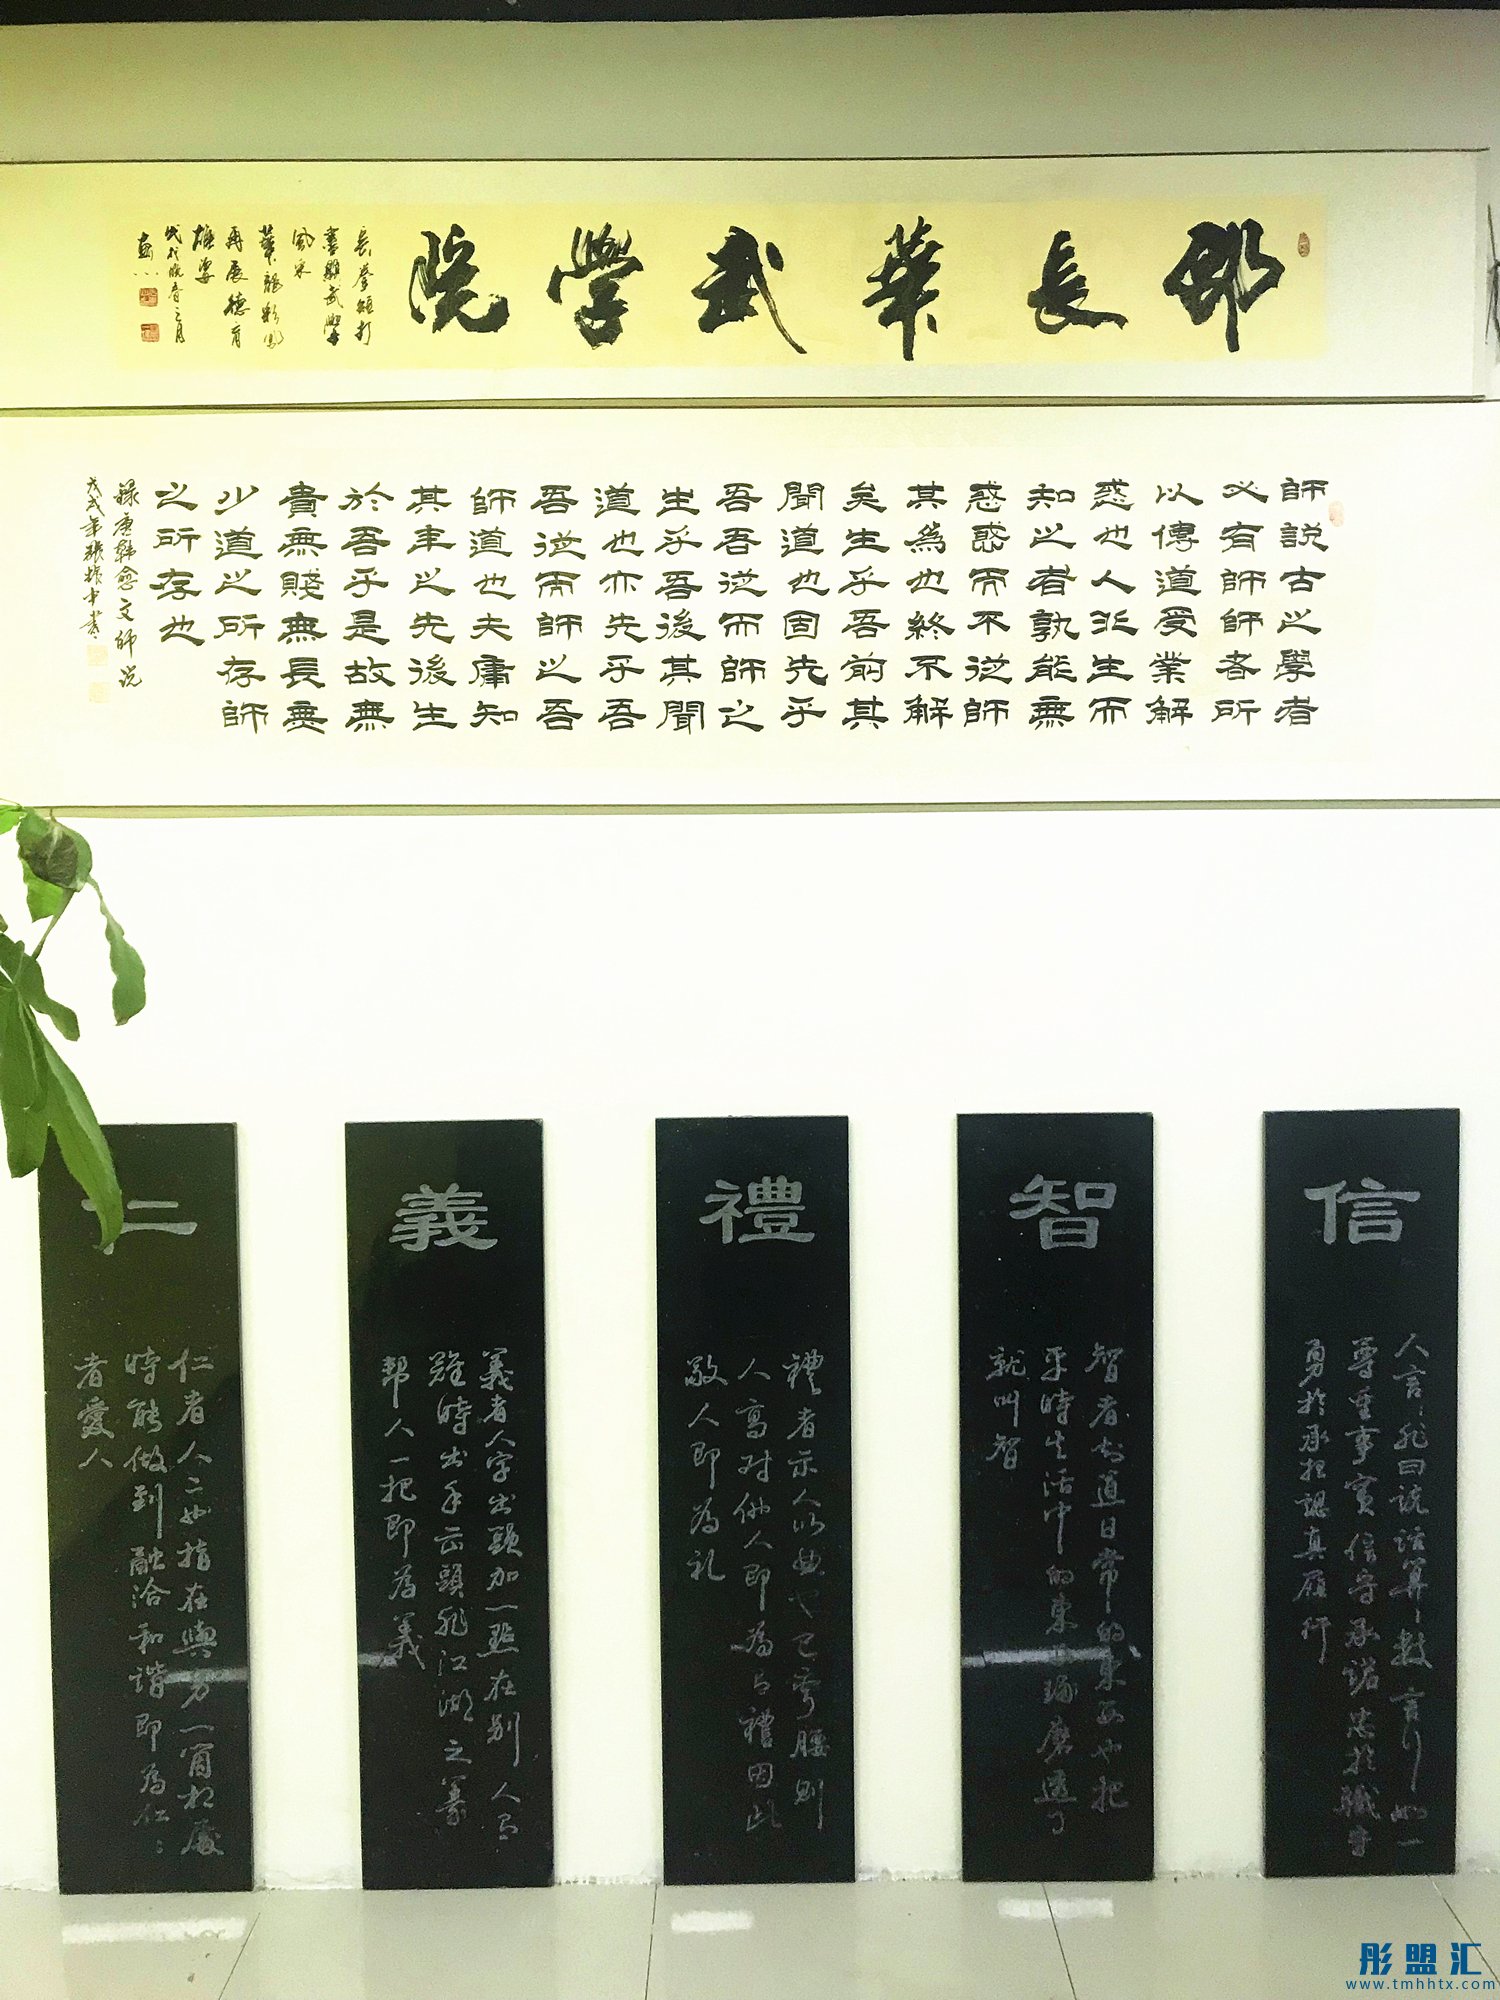 邵長華武學院
長拳短打
書顯武學
風采
華龍彩鳳
再展德育
雄姿
戊戌晚春三月
師説古之學者
必有師師者所
以傳道受業解
惑也人非生而
知之者孰能無
惑惑而不從師
其為也終不解
矣生乎吾前其
聞道也固先乎
吾吾從而師之
生乎吾後其聞
道也亦先乎吾
吾從而師之吾
師道也夫庸知
其年之先後生
於吾乎是故無
貴無賤無長無
少道之所存師
之所存也
錄唐韓愈文師说
信
人言非曰説話算數言行如一
尊重事實信守承諾忠於職守
勇於承担認真履行
智
智者知道日常的東西也把
平時生活中的東西琢磨透了
就叫智
禮
禮者示人以曲也己弯腰則
人高对他人即為有禮因此
敬人即為礼
義
義者人字出頭加一點在别人有
難時出手出頭非江湖之義
帮人一把即為義
仁
仁者人二也指在與另一個相處
時能做到融洽和谐即為仁仁
者愛人
彤盟汇
www.tmhhtx.com